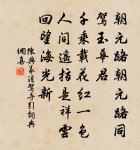 朝元路朝元路同
駕玉華君
千乘載花紅一色
人間遙指是祥雲
回望海光新
陳與義法駕導引詞典
網喜